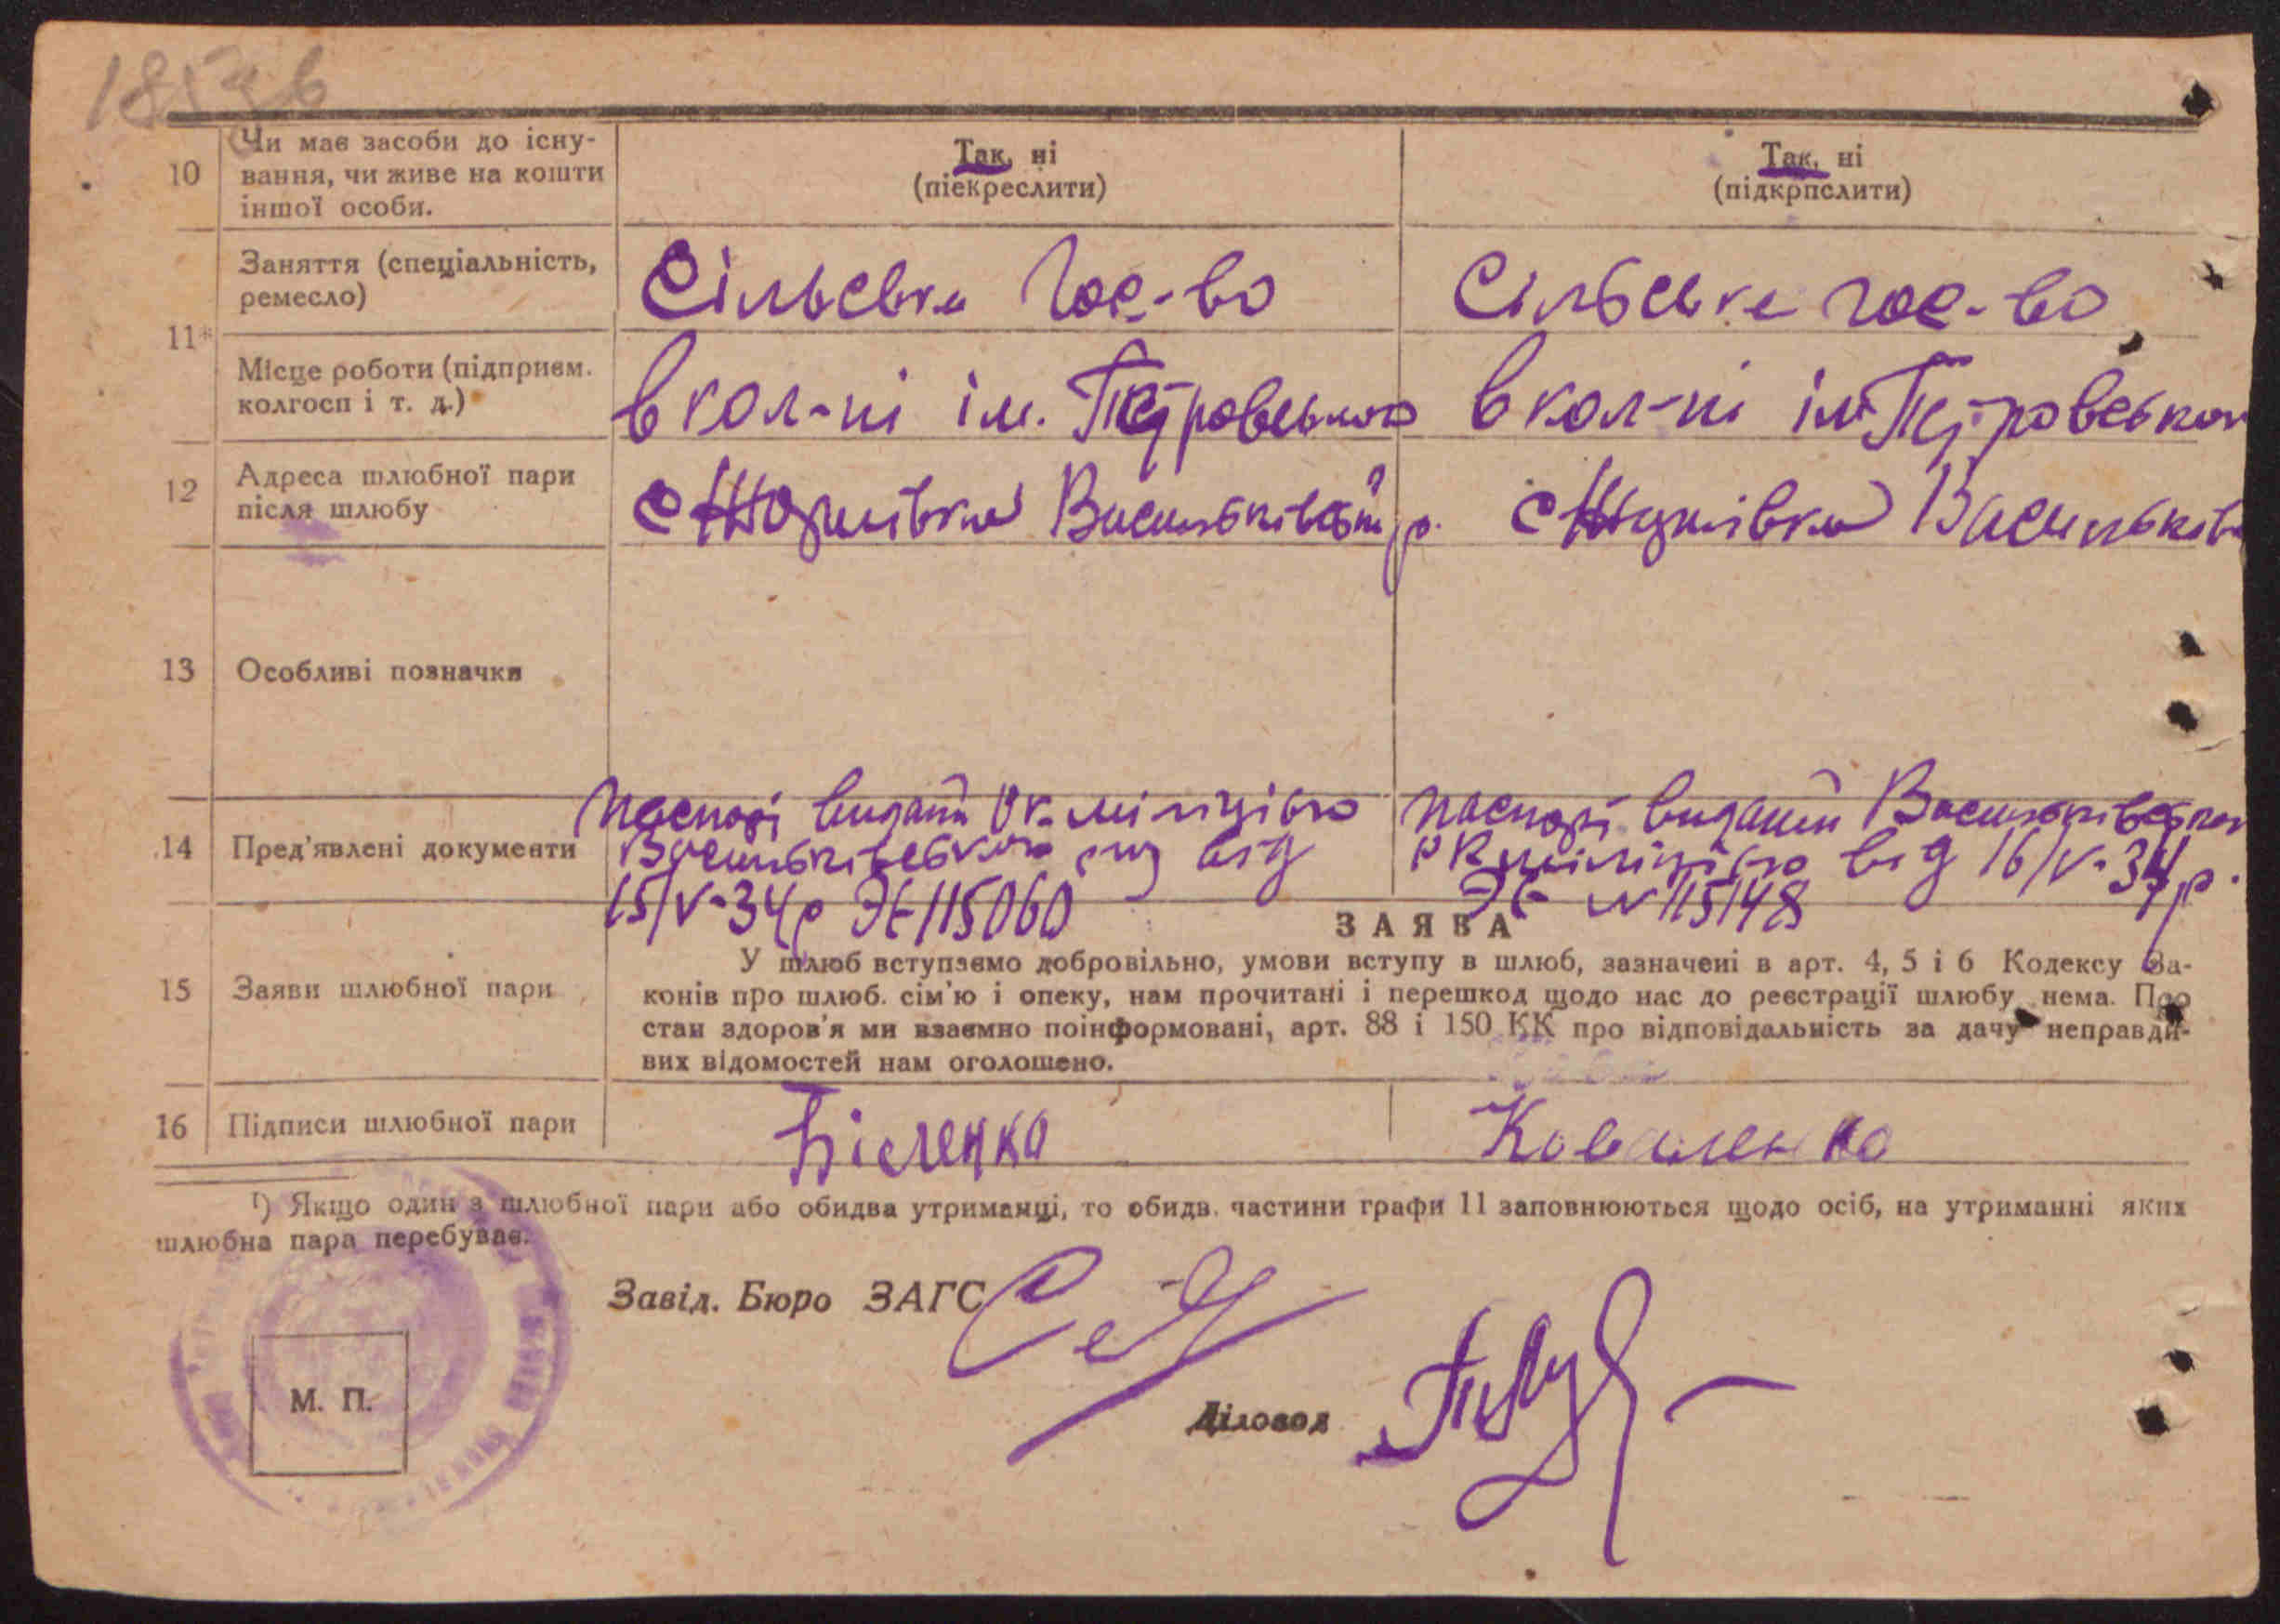 10 Чи має засоби до існу-
вання, чи живе на кошти
іншої особи.
Так, ні
(піекреслити)
Так, ні
(підкрпслити)
11*
Заняття (спеціальність,
ремесло)
Сільське гос-во
Сільське гос-во
Місце роботи (підприєм.
колгосп і т. д.)
в кол-пі ім. Петровського
в кол-пі ім Петровськог
12 Адреса шлюбної пари
після шлюбу
с Васильківськ р.
с Васильків
13 Особливі позначки
14 Пред'явлені документи
паспорт виданий Рк. міліцією
Васильківського від
15/V-34р ЭЄ 115060
паспорт виданий Васильківською
рк міліцією від 16/V-34р.
ЭЄ № 115148
ЗАЯВА
15 Заяви шлюбної пари
У шлюб вступаємо добровільно, умови вступу в шлюб, зазначені в арт. 4, 5 і 6 Кодексу За-
конів про шлюб. сім'ю і опеку, нам прочитані і перешкод щодо нас до реєстрації шлюбу нема. Про
стан здоров'я ми взаємно поінформовані, арт. 88 і 150 КК про відповідальність за дачу неправди-
вих відомостей нам оголошено.
16 Підписи шлюбної пари
Біленка
Коваленко
¹) Якщо один з шлюбної пари або обидва утриманці, то обидв. частини графи 11 заповнюються щодо осіб, на утриманні яких
шлюбна пара перебуває.
Завід. Бюро ЗАГС
М. П.
Діловод